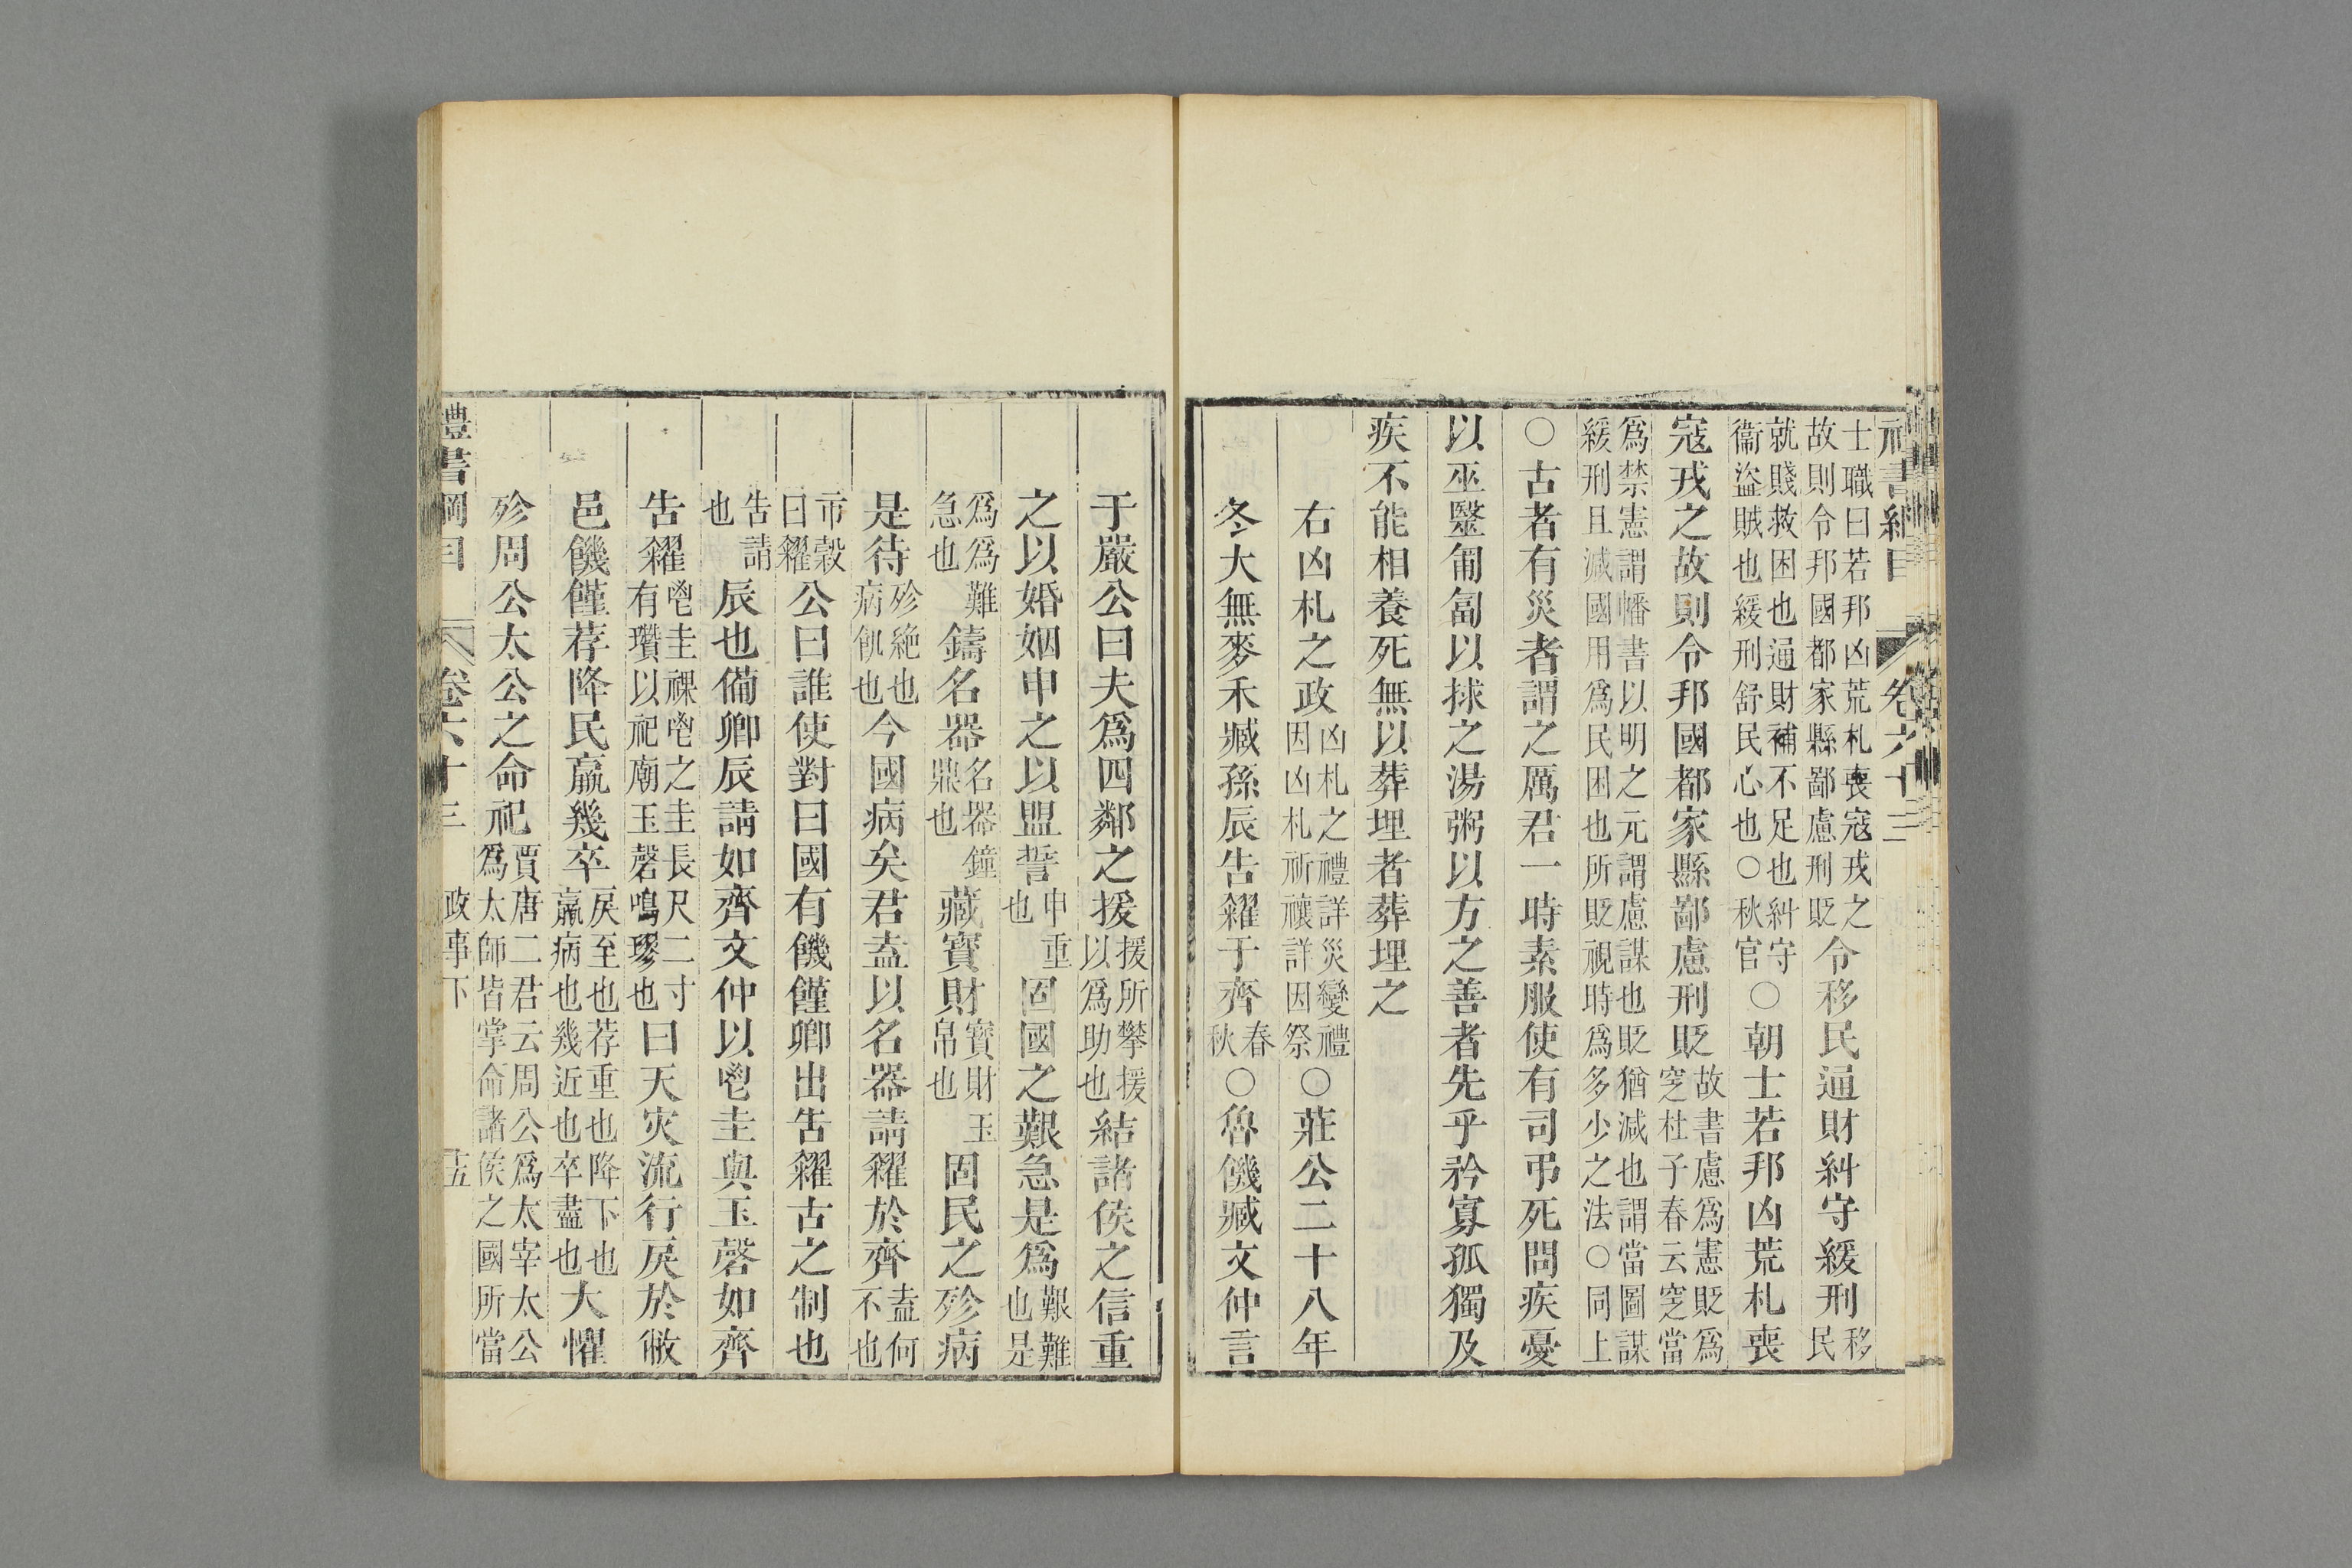 禮書綱目 卷六十三
士職曰若邦凶荒札喪寇戎之
故則令邦國都家縣鄙慮刑貶
令移民通財糾守緩刑
移
民
就賤救困也通財補不足也糾守
備盜賊也緩刑舒民心也○秋官
○朝士若邦凶荒札喪
寇戎之故則令邦國都家縣鄙慮刑貶
故書慮爲憲貶爲
窆杜子春云窆當
爲禁憲謂幡書以明之元謂慮謀也貶猶減也謂當圖謀
緩刑且減國用爲民困也所貶視時爲多少之法○同上
○古者有災者謂之厲君一時素服使有司弔死問疾憂
以巫毉匍匐以捄之湯粥以方之善者先乎矜寡孤獨及
疾不能相養死無以葬埋者葬埋之
右凶札之政
凶札之禮詳災變禮
因凶札祈禳詳因祭
○莊公二十八年
冬大無麥禾臧孫辰告糴于齊
春
秋
○魯饑臧文仲言
于嚴公曰夫爲四鄰之援
援所攀援
以爲助也
結諸侯之信重
之以婚姻申之以盟誓
申重
也
固國之艱急是爲
艱難
也是
爲爲難
急也
鑄名器
名器鐘
鼎也
藏寶財
寶財玉
帛也
固民之殄病
是待
殄絕也
病飢也
今國病矣君盍以名器請糴於齊
盍何
不也
市穀
曰糴
公曰誰使對曰國有饑饉卿出告糴古之制也
告請
也
辰也備卿辰請如齊文仲以鬯圭與玉磬如齊
告糴
鬯圭祼鬯之圭長尺二寸
有瓚以祀廟玉磬鳴璆也
曰天災流行戾於敝
邑饑饉荐降民羸幾卒
戾至也荐重也降下也
羸病也幾近也卒盡也
大懼
殄周公太公之命祀
賈唐二君云周公爲太宰太公
爲太師皆掌命諸侯之國所當
禮書綱目 卷六十三 政事下 十五